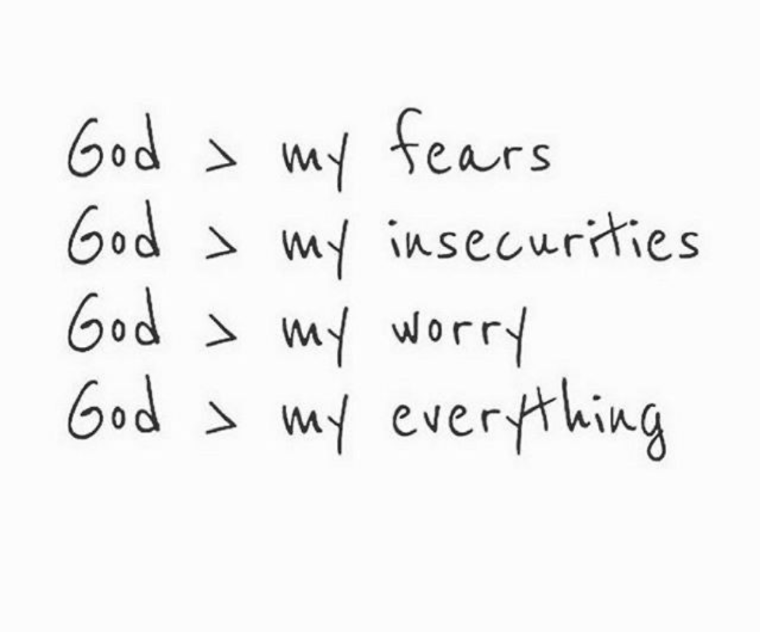 God > my fears
God > my insecurities
God > my worry
God > my everything